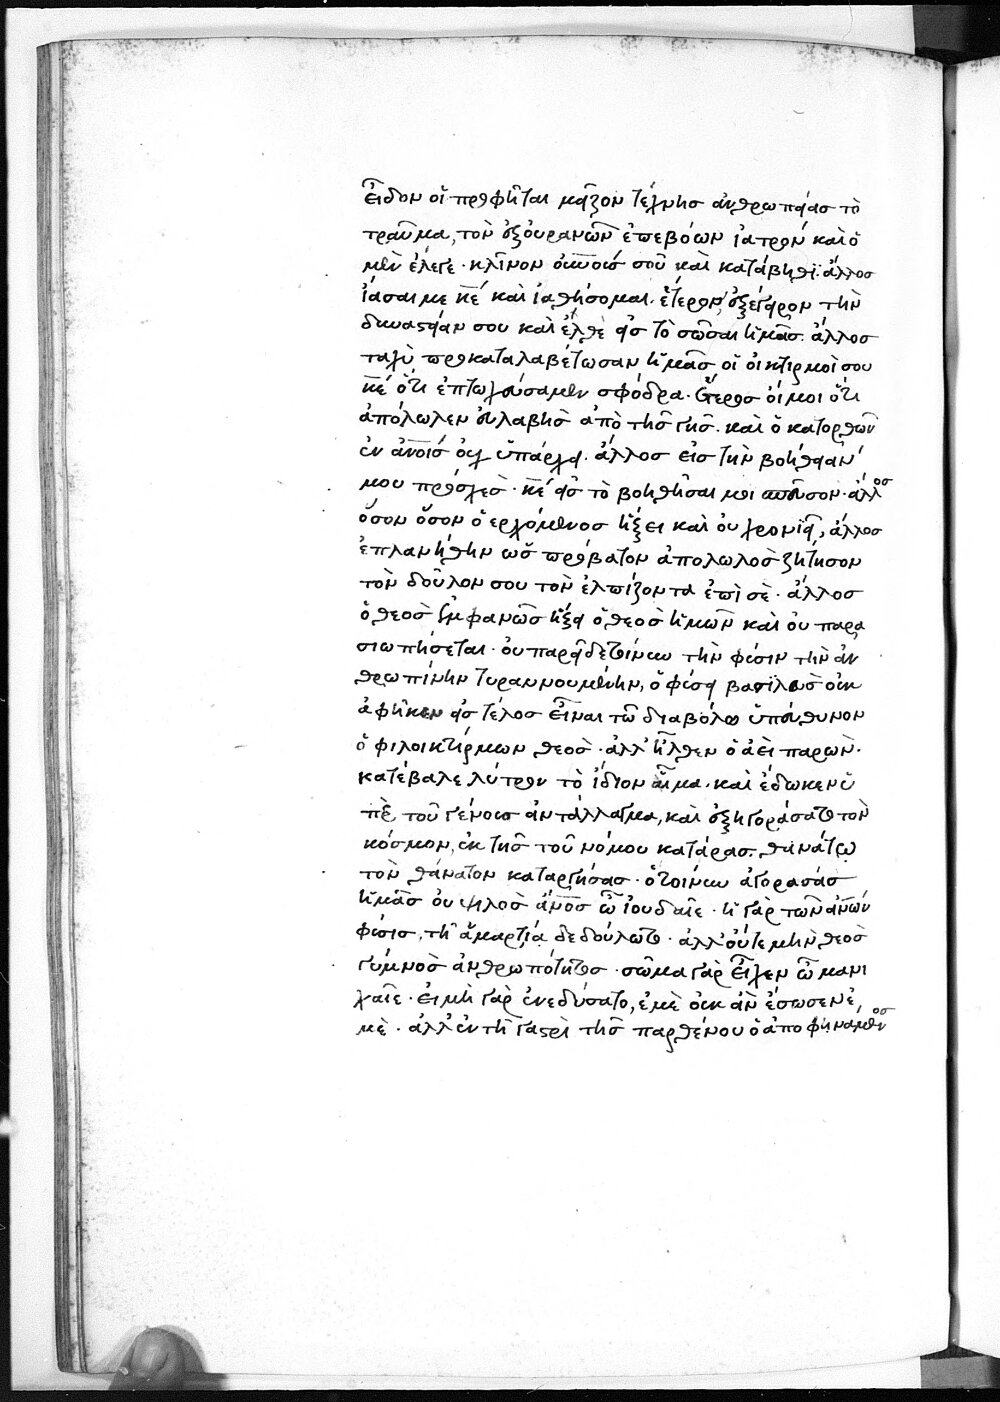 εἶδον οἱ προφῆται μεῖζον τέχνης ἀνθρωπείας τὸ
τραῦμα, τὸν ἐξ οὐρανῶν ἐπεβόων ἰατρόν καὶ ὁ
μὲν ἔλεγε· κλῖνον οὐνοὺσ σοῦ καὶ κατάβηθι· ἄλλος
ἴασαι με κε καὶ ἰαθήσομαι. ἕτερος, ἐξέγειρον τὴν
δυναστείαν σου καὶ ἐλθὲ εἰς τὸ σῶσαι ἡμᾶς. ἄλλος
ταχὺ προκαταλαβέτωσαν ἡμᾶς οἱ οἰκτιρμοὶ σου
κε ὅτι ἐπτωχεύσαμεν σφόδρα. ἕτερος οἴμοι ὅτι
ἀπόλωλεν εὐλαβὴς ἀπὸ τῆς γῆς. καὶ ὁ κατορθῶν
ἐν ἀνοις οὐχ ὑπάρχει. ἄλλος εἰς τὴν βοήθειάν
μου πρόσχες· κε εἰς τὸ βοηθῆσαι μοι σπεῦσον· ἄλλος
ὅσον ὅσον ὁ ἐρχόμενος ἥξει καὶ οὐ χρονιεῖ, ἄλλος
ἐπλανήθην ὡς πρόβατον ἀπολωλὸς ζήτησον
τὸν δοῦλον σου τὸν ἐλπίζοντα ἐπὶ σὲ· ἄλλος
ὁ θεὸς ἐμφανῶς ἥξει ὁ θεὸς ἡμῶν καὶ οὐ παρα
σιωπήσεται. οὐ παρεῖδε τοίνυν τὴν φύσιν τὴν ἀν
θρωπίνην τυραννουμένην, ὁ φύσει βασιλεὺς οὐκ
ἀφῆκεν εἰς τέλος εἶναι τῶ διαβόλω ὑπεύθυνον
ὁ φιλοικτίρμων θεὸς. ἀλλ' ἦλθεν ὁ ἀεὶ παρών.
κατέβαλε λύτρον τὸ ἴδιον αἷμα. καὶ ἔδωκεν ὑ
πὲρ τοῦ γένους ἀντάλλαγμα, καὶ ἐξηγοράσατο τὸν
κόσμον, ἐκ τῆς τοῦ νόμου κατάρας. θανάτῳ
τὸν θάνατον καταργήσας. ὁ τοίνυν ἀγορασάς
ἡμᾶς οὐ ψιλὸς ἄνος ὦ ἰουδαῖε. ἡ γὰρ τῶν ἀνων
φύσις, τῆ ἁμαρτία δεδούλωτο. ἀλλ' οὔτε μὴν θεὸς
γύμνὸς ἀνθρωπότητος. σῶμα γὰρ εἶχεν ὦ μανι
χαῖε. εἰ μὴ γὰρ ἐνεδύσατο, ἐμὲ οὐκ ἂν ἔσωσεν ἐ,
μὲ. ἀλλ' ἐν τῆ γαστρὶ τῆς παρθένου ὁ ἀποφηνάμενος